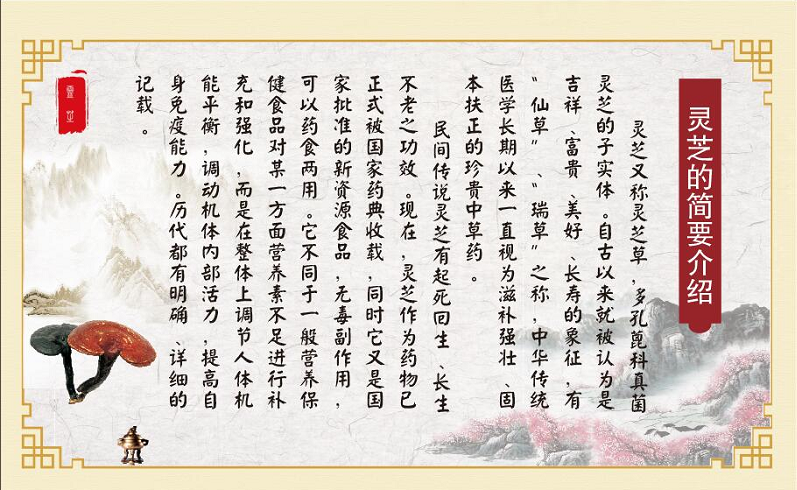 灵芝的简要介绍
灵芝又称灵芝草，多孔蓖科真菌
灵芝的子实体。自古以来就被认为是
吉祥、富贵、美好、长寿的象征，有
“仙草”、“瑞草”之称，中华传统
医学长期以来一直视为滋补强壮、固
本扶正的珍贵中草药。
民间传说灵芝有起死回生、长生
不老之功效。现在，灵芝作为药物已
正式被国家药典收载，同时它又是国
家批准的新资源食品，无毒副作用，
可以药食两用。它不同于一般营养保
健食品对某一方面营养素不足进行补
充和强化，而是在整体上调节人体机
能平衡，调动机体内部活力，提高自
身免疫能力。历代都有明确、详细的
记载。
靈芝